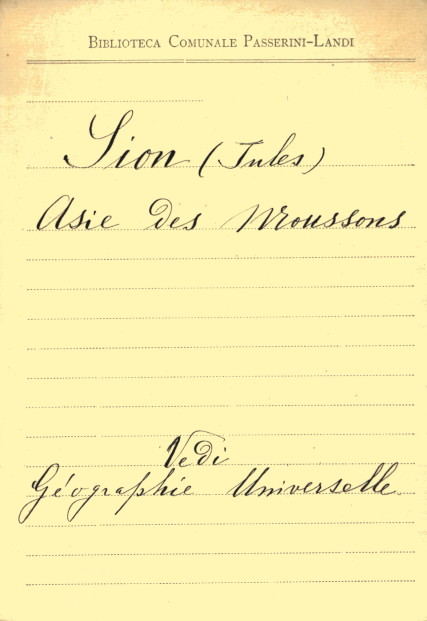 Biblioteca Comunale Passerini-Landi
Sion (Jules)
Asie des Moussons
Vedi
Géographie Universelle